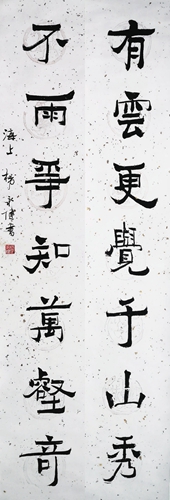 有雲更覺千山秀
不雨爭知萬壑奇
海上 楊永健書